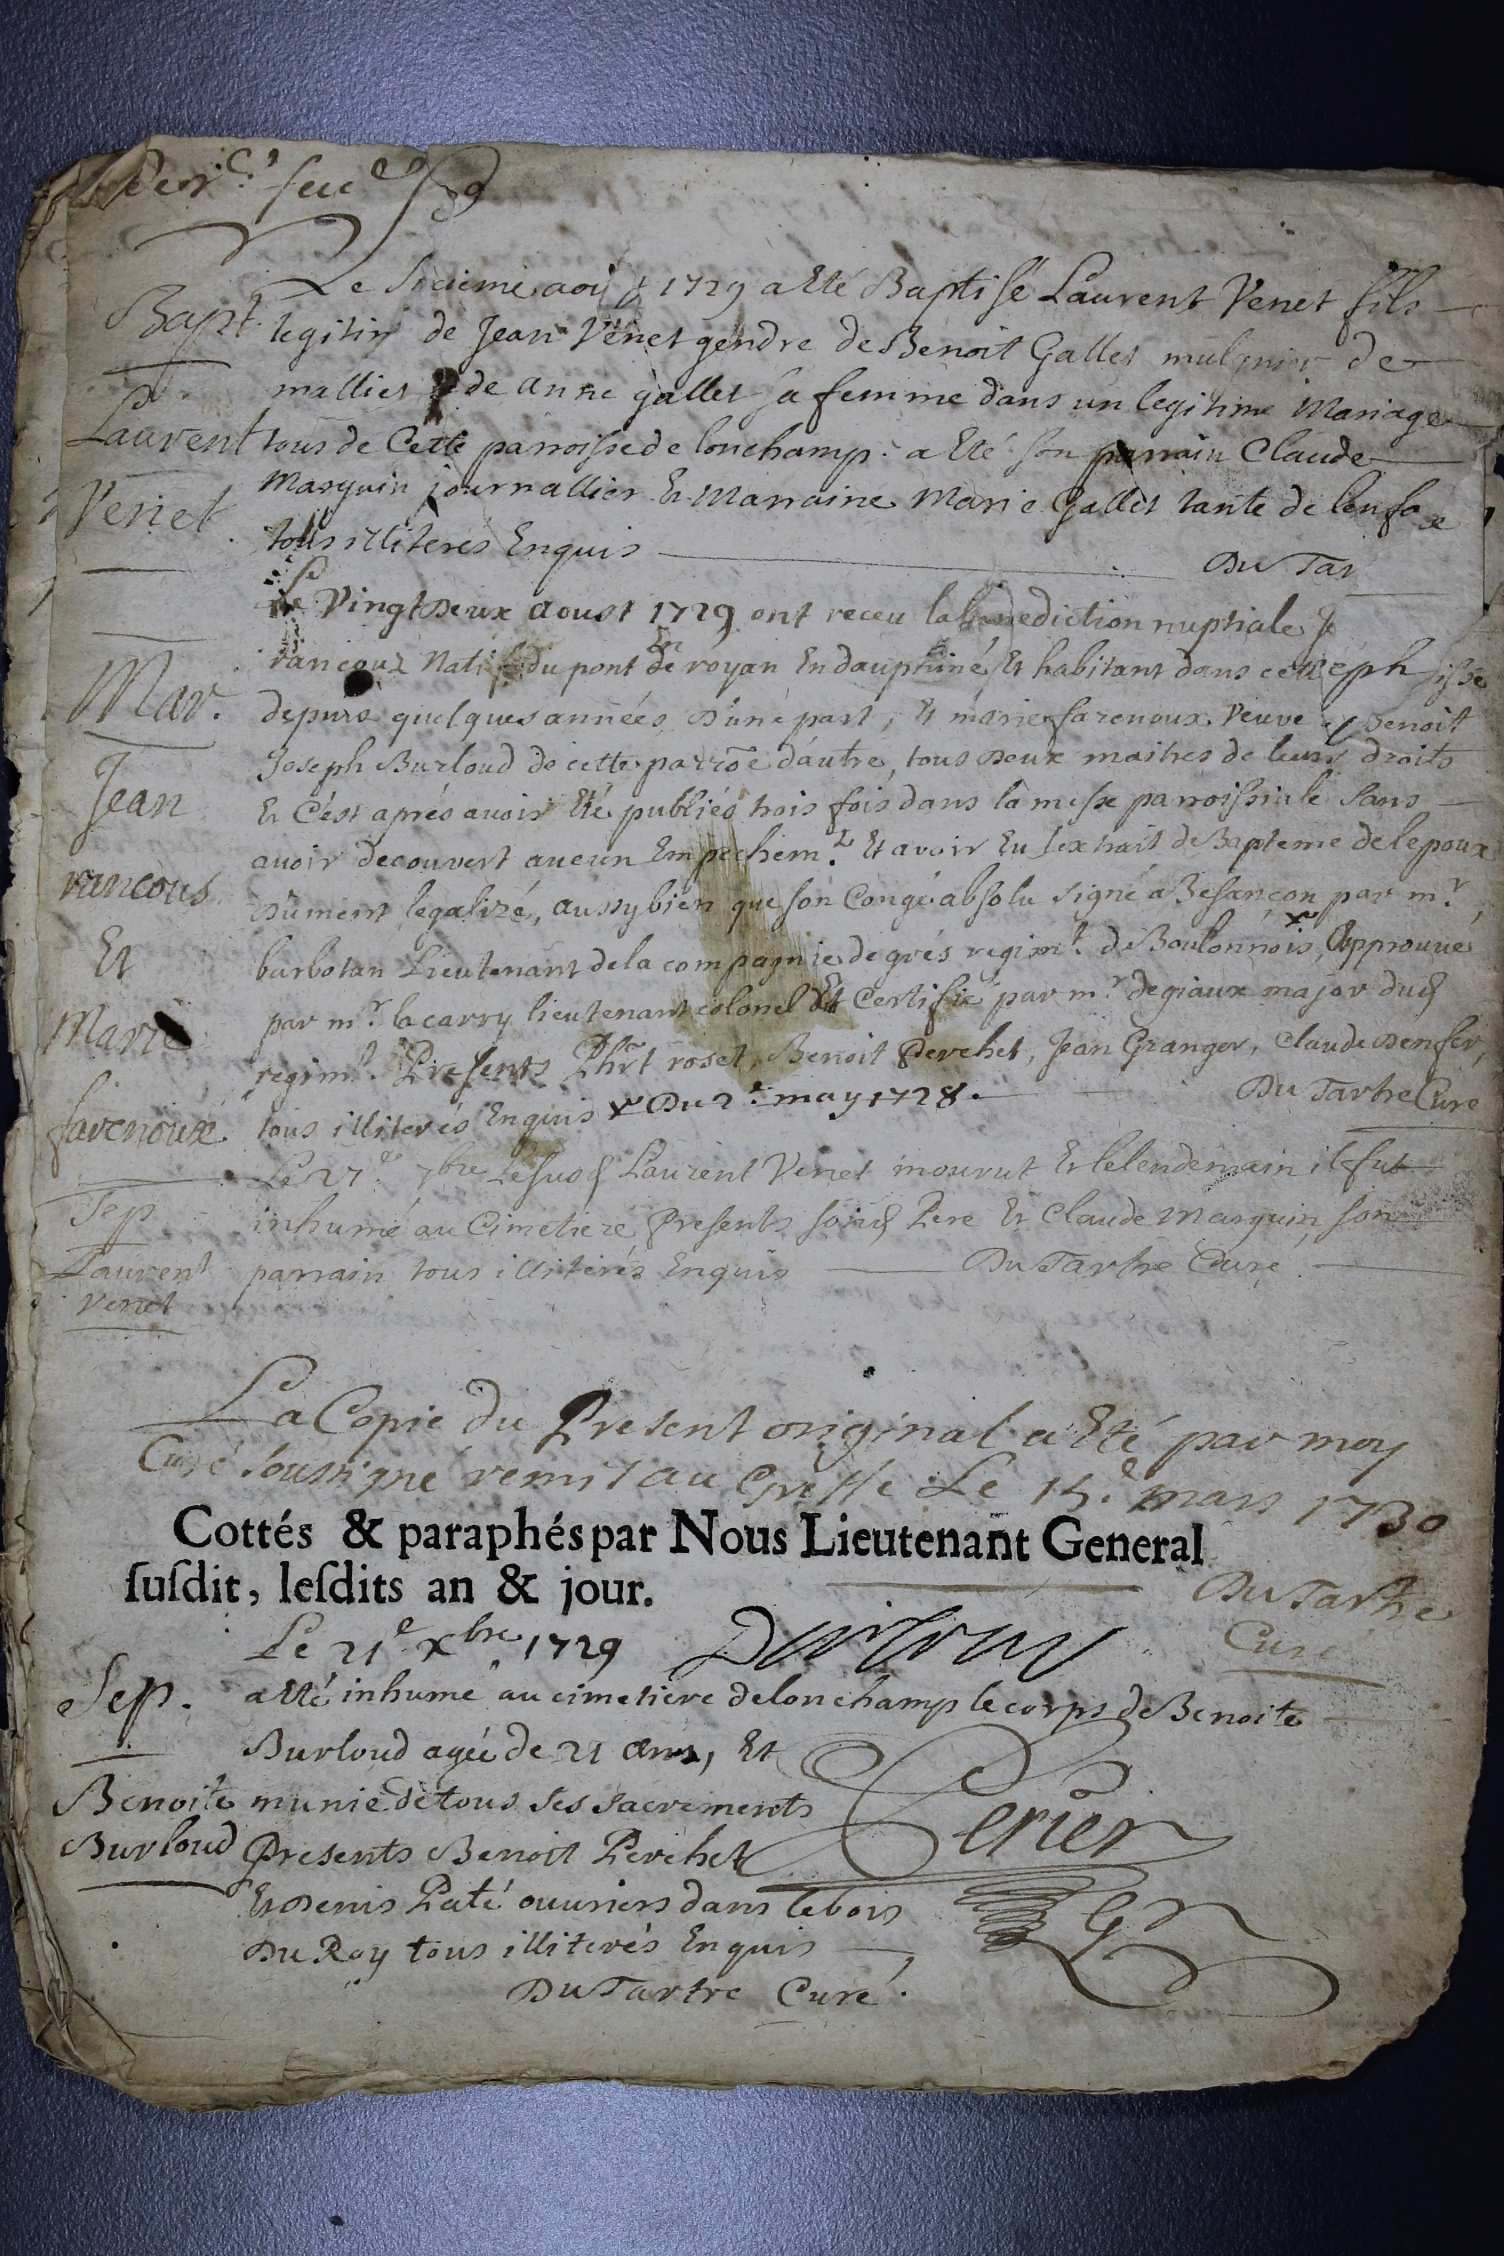 Bapt.
Laurent
Venet
Le sixieme aoust 1729 a Eté Baptisé Laurent Venet fils
legitim de Jean Venet gendre de Benoit Gallet mulnier de
malliet & de anne gallet sa femme dans un legitime Mariage
tous de Cette parroisse de lonchamp. a Eté son parrain Claude
Marquin journallier Et Marraine Marie Gallet tante de lenfa
tous illiterés Enquis Du Tar
Mar.
Jean
rancoux
Et
Marie
farenoux
Le Vingt Deux aoust 1729 ont receu la benediction nuptiale J
rancoux Natif du pont En royan En dauphiné Et habitant dans cette
depuis quelques années D'une part, Et marie farenoux Veuve benoit
Joseph Burloud de cette parroe d'autre, tous Deux maitres de leurs droits
Et C'est aprés avoir Eté publiés trois fois dans la messe parroissiale sans
avoir decouvert aucun Empechemt. Et avoir Eu lextrait de Bapteme de lepoux
Dument legalizé, aussy bien que son Congé absolu signé a Besançon par mr.
barbotan Lieutenant de la compagnie de grés regimt. de Boulonnois, Approuvé
par mr. lacarry lieutenant colonel Et Certifié par mr. degiaux major dud
regimt. Presents Phrt roset, Benoit Perchet, Jean Granger, Claude Denfer,
tous illiterés Enquis x Du 2e. may 1728. Du Tartre Curé
Sep
Laurent
Venet
Le 27e 7bre Le susd Laurent Venet mourut Et le lendemain il fut
inhumé au Cimetiere Presents sond Pere Et Claude Marquin, son
parrain tous illiterés Enquis Du Tartre Curé
La Copie du Present original a Eté par moy
Curé soussigné remis au Greffe Le 15e. mars 1730
Du Tartre
Curé
Cottés & paraphés par Nous Lieutenant General
susdit, lesdits an & jour.
Sep.
Benoite
Burloud
Le 21e Xbre 1729
a Eté inhumé au cimetiere de lonchamp le corps de Benoite
Burloud agée de 21 ans, Et
munie de tous ses sacrements
Presents Benoit Perchet
Et Denis Paté ouvriers dans le bois
Du Roy tous illiterés Enquis
Du Tartre Curé.
Perier